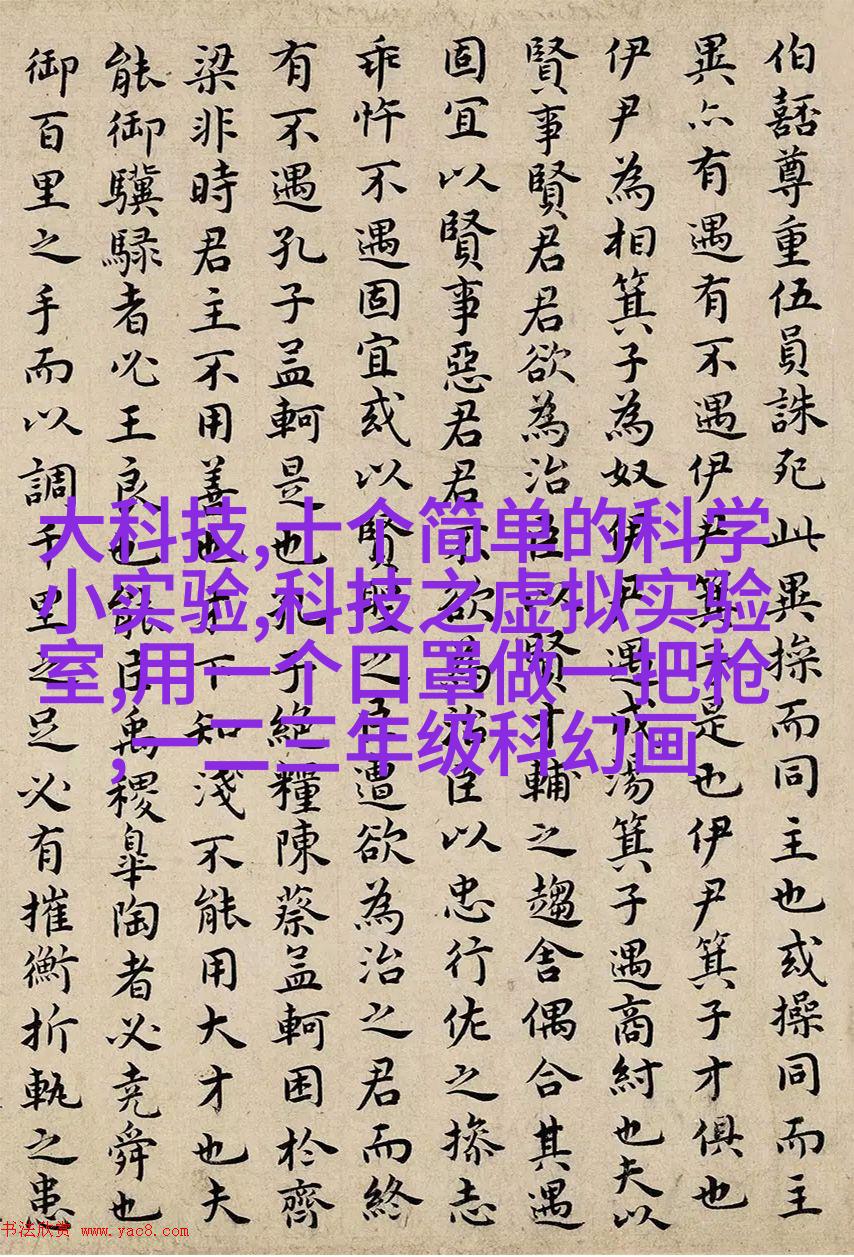 伯嚭尊重伍員誅死此異操而同主也或操同而主
異亦有遇有不遇伊尹箕子是也伊尹箕子才俱也
伊尹為相箕子為奴伊尹遇成湯箕子遇商紂也夫以
賢事賢君君欲為治臣以賢才輔之趨舍偶合其遇
固宜以賢事惡君君不欲為治臣以忠行佐之操志
乖忤不遇固宜或以賢聖之臣遭欲為治之君而終
有不遇孔子孟軻是也孔子絕糧陳蔡孟軻困於齊
梁非時君主不用善也才下知淺不能用大才也夫
能御驥騄者必王良也能臣禹稷皋陶者必堯舜也
御百里之手而以調千里之足必有摧衡折軛之患
大科技,十个简单的科学
小实验,科技之虚拟实验
室,用一个口罩做一把枪
,一二三年级科幻画
书法欣赏 www.yac8.com